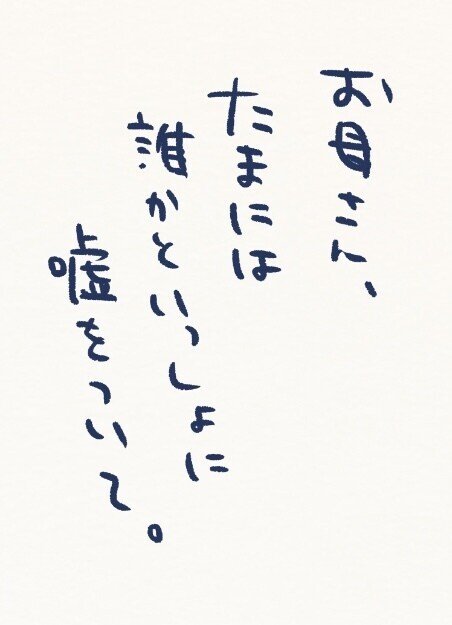 お母さん、
たまには
誰かといっしょに
嘘をついて。